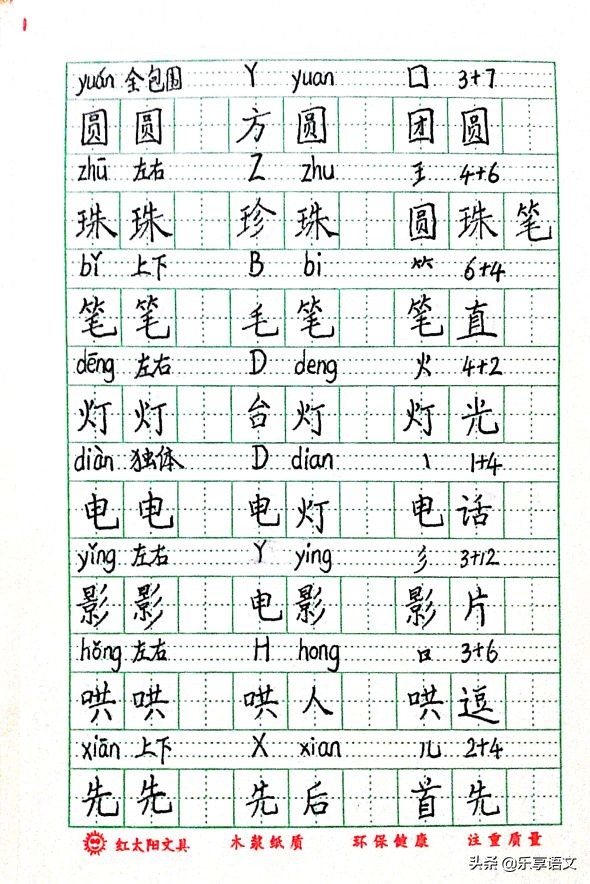 1
yuán 全包围 Y yuan 囗 3+7
圆 圆 方 圆 团 圆
zhū 左右 Z zhu 王 4+6
珠 珠 珍 珠 圆 珠 笔
bǐ 上下 B bi ⺮ 6+4
笔 笔 毛 笔 笔 直
dēng 左右 D deng 火 4+2
灯 灯 台 灯 灯 光
diàn 独体 D dian 丨 1+4
电 电 电 灯 电 话
yǐng 左右 Y ying 彡 3+12
影 影 电 影 影 片
hǒng 左右 H hong 口 3+6
哄 哄 哄 人 哄 逗
xiān 上下 X xian 儿 2+4
先 先 先 后 首 先
红太阳文具 木浆纸质 环保健康 注重质量
头条 @乐享语文